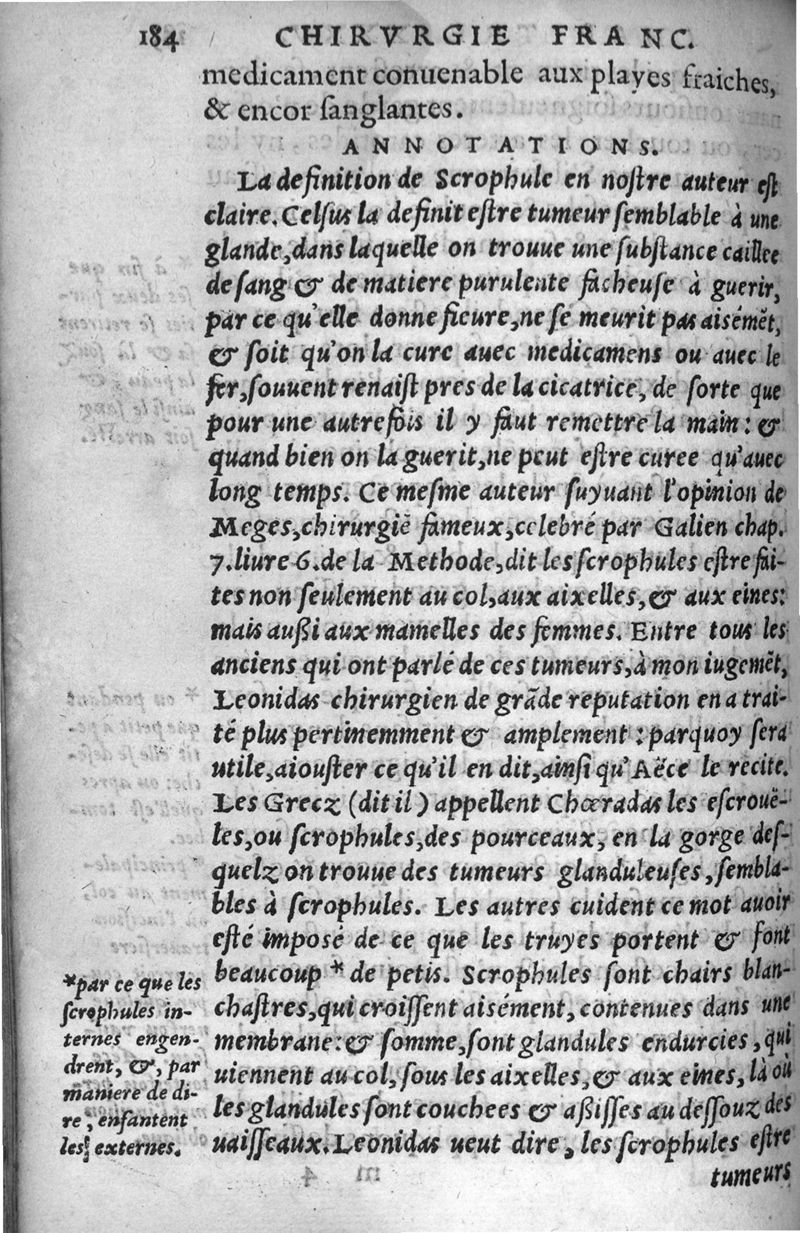 184 CHIRVRGIE FRANC.
medicament conuenable aux playes fraiches,
& encor ſanglantes.
ANNOTATIONS.
La definition de Scrophule en noſtre auteur eſt
claire. Celſus la definit eſtre tumeur ſemblable à une
glande, dans laquelle on trouue une ſubſtance caillee
de ſang & de matiere purulente fâcheuſe à guerir,
par ce qu'elle donne fieure, ne ſe meurit pas aisémẽt,
& ſoit qu'on la cure auec medicamens ou auec le
fer, ſouuent renaiſt pres de la cicatrice, de ſorte que
pour une autrefois il y faut remettre la main: &
quand bien on la guerit, ne peut eſtre curee qu'auec
long temps. Ce meſme auteur ſuyuant l'opinion de
Meges, chirurgiẽ fameux, celebré par Galien chap.
7. liure 6. de la Methode, dit les ſcrophules eſtre fai-
tes non ſeulement au col, aux aixelles, & aux eines:
mais außi aux mamelles des femmes. Entre tous les
anciens qui ont parlé de ces tumeurs, à mon iugemẽt,
Leonidas chirurgien de grãde reputation en a trai-
té plus pertinemment & amplement: parquoy ſera
utile, aiouſter ce qu'il en dit, ainſi qu'Aëce le recite.
Les Grecz (dit il) appellent Chœradas les eſcrouë-
les, ou ſcrophules, des pourceaux, en la gorge deſ-
quelz on trouue des tumeurs glanduleuſes, ſembla-
bles à ſcrophules. Les autres cuident ce mot auoir
eſté imposé de ce que les truyes portent & font
beaucoup * de petis. Scrophules ſont chairs blan-
chaſtres, qui croiſſent aisément, contenues dans une
membrane: & ſomme, ſont glandules endurcies, qui
uiennent au col, ſous les aixelles, & aux eines, là où
les glandules ſont couchees & aßiſſes au deſſouz des
uaiſſeaux. Leonidas ueut dire, les ſcrophules eſtre
tumeurs
*par ce que les
ſcrophules in-
ternes engen-
drent, &, par
maniere de di-
re, enfantent
les externes.